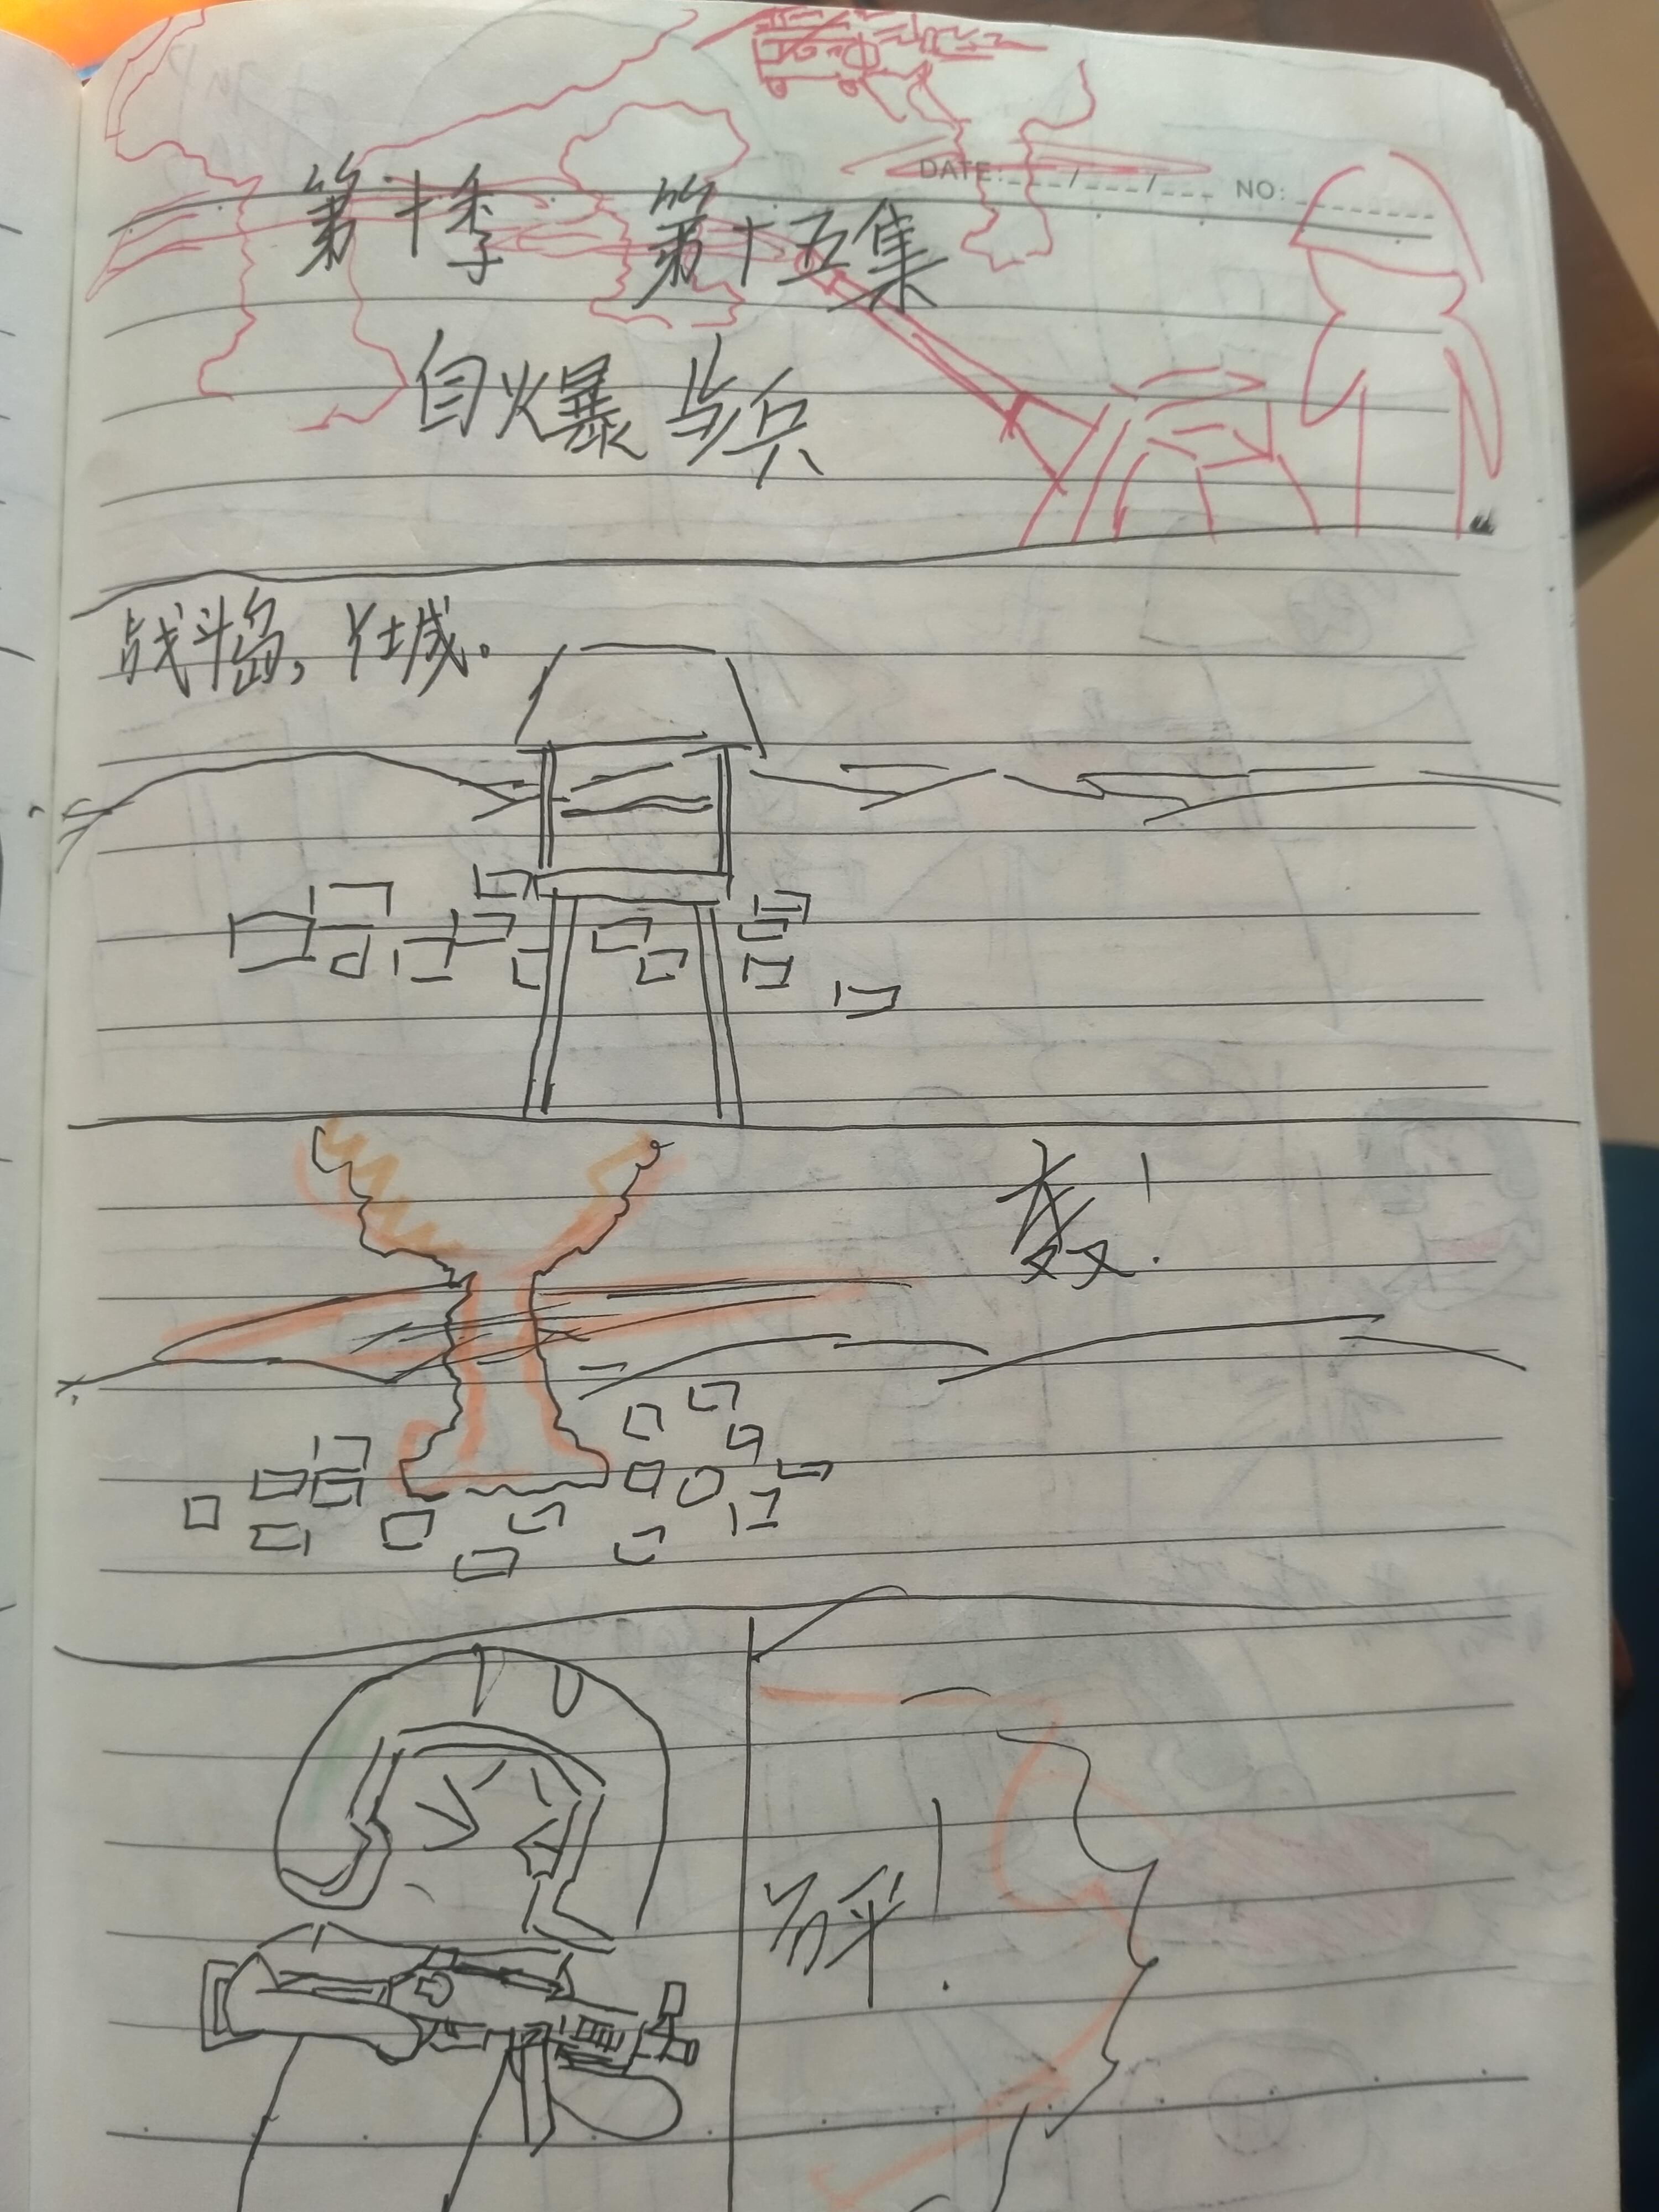 DATE: / / NO:
第十季 第十五集
自爆步兵
战斗岛，仕城。
轰！
砰！